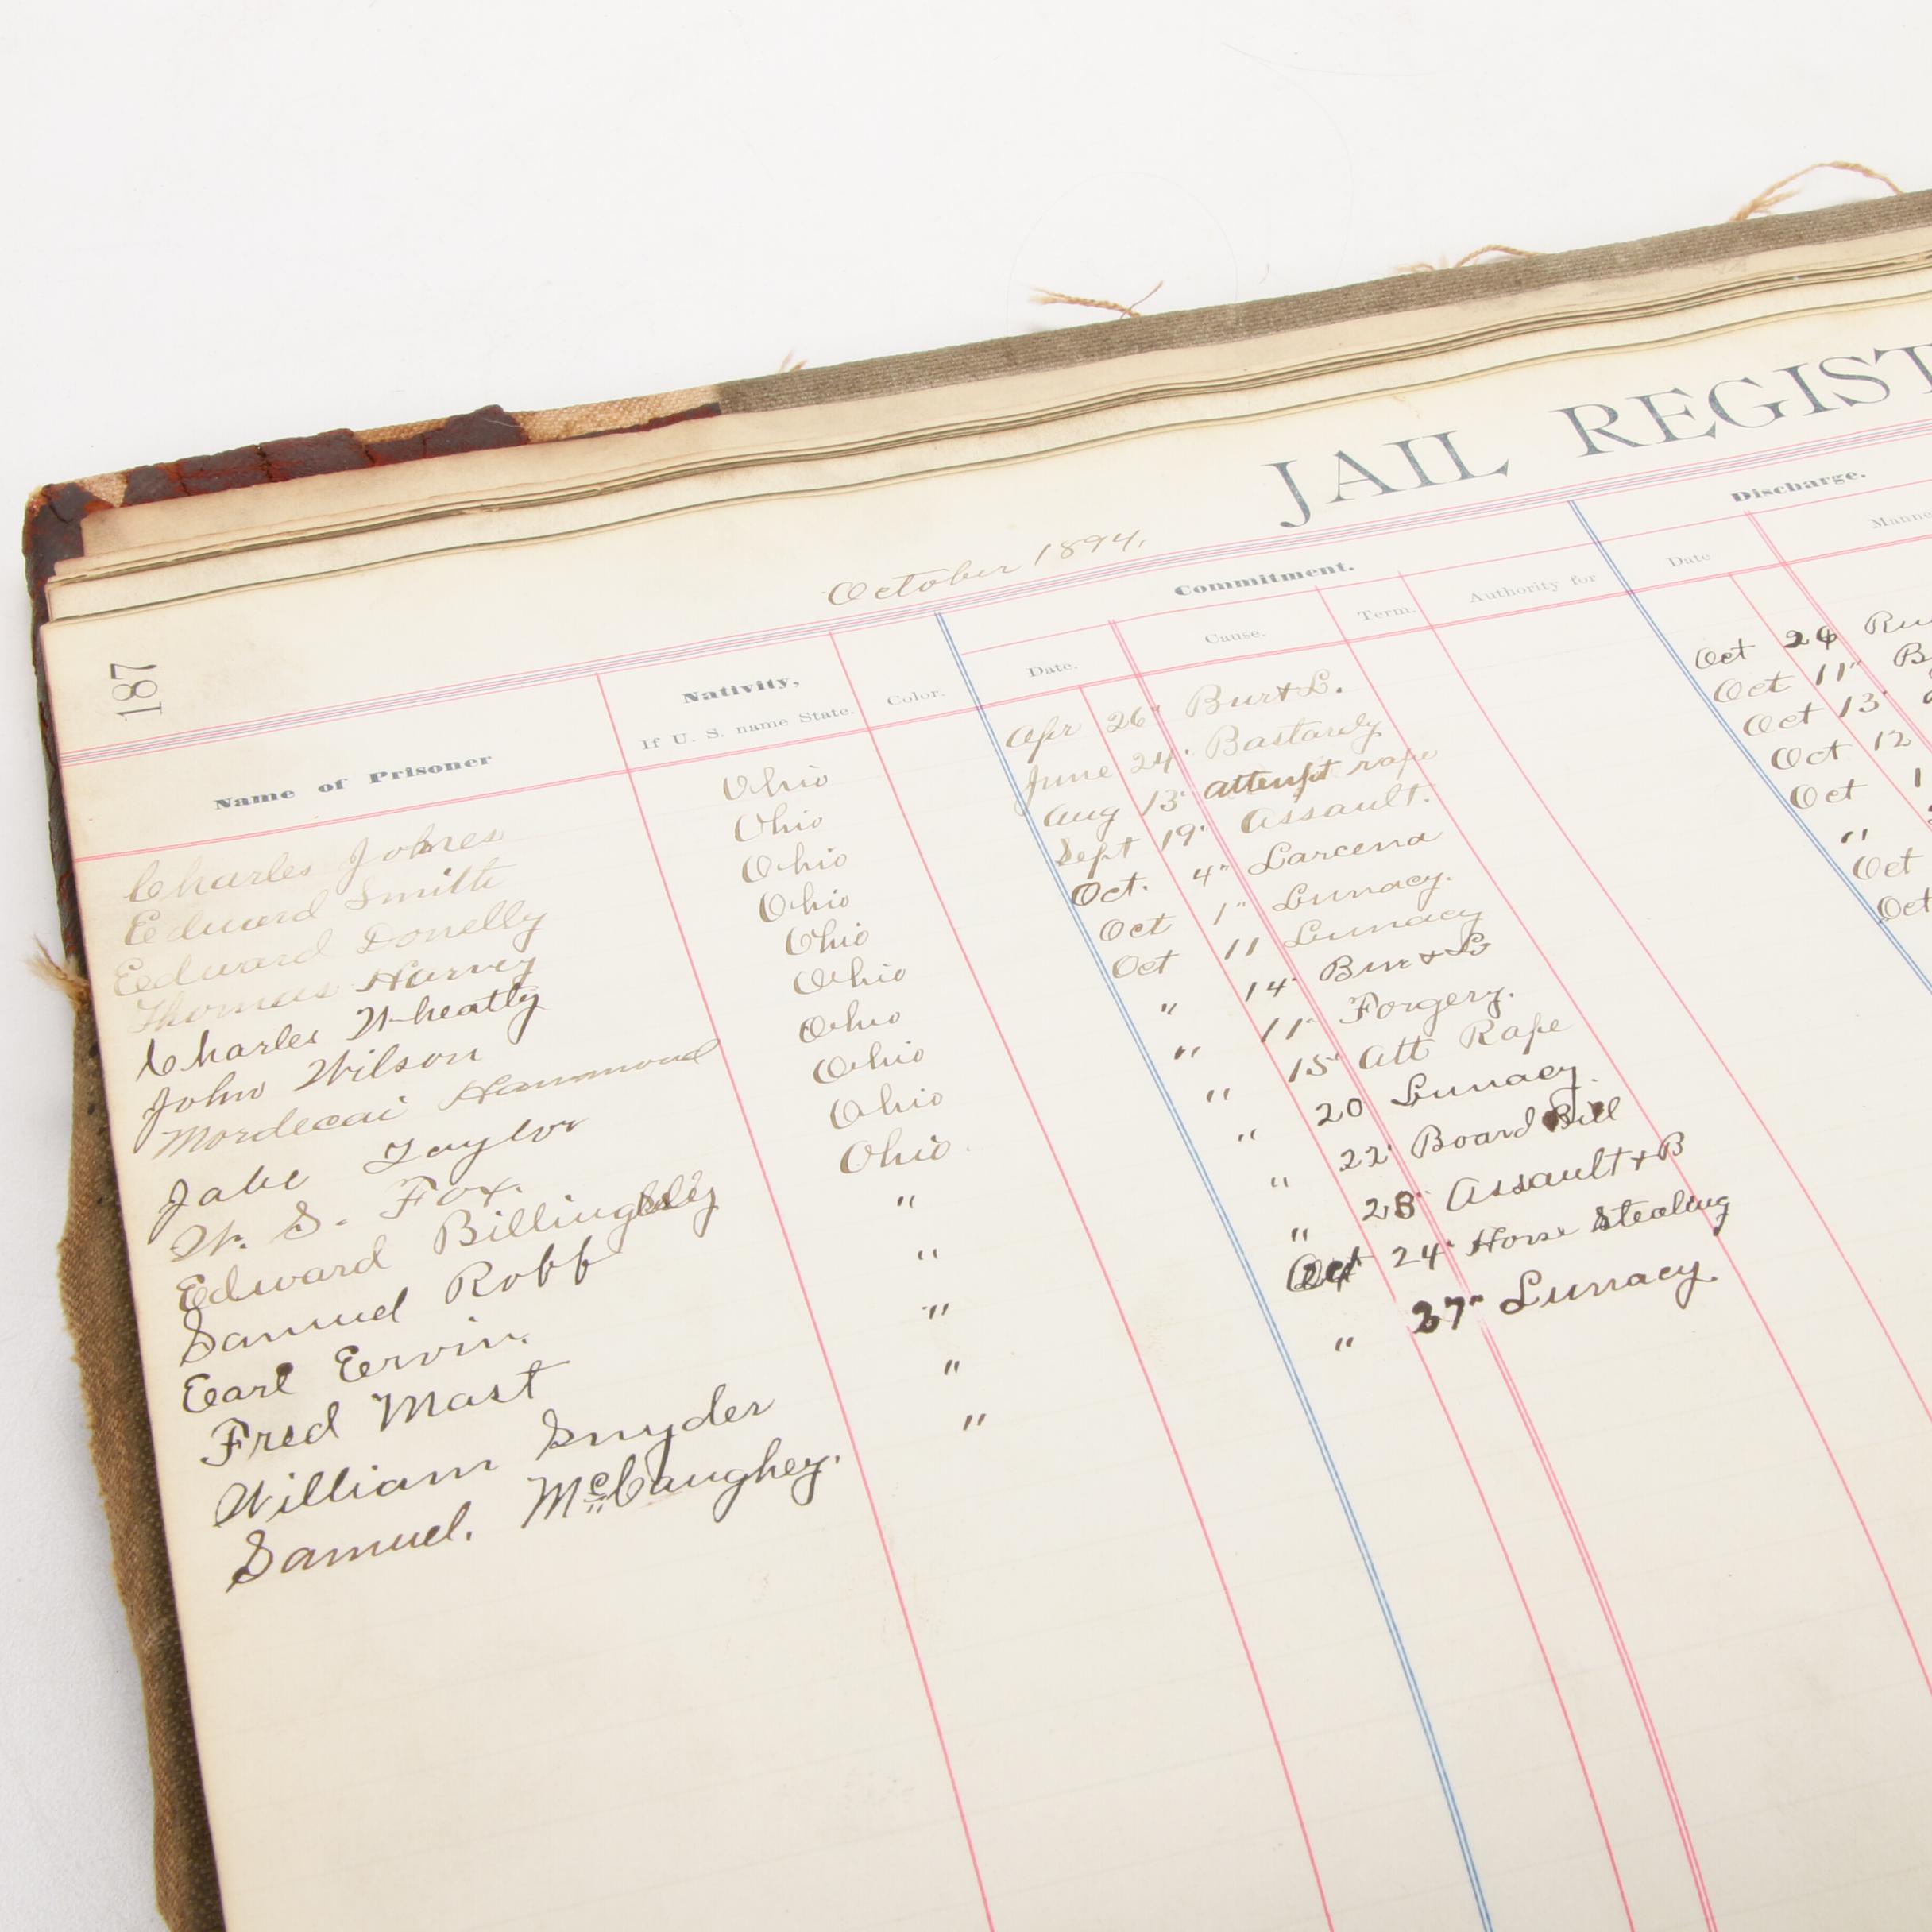 JAIL REGIST
October 1894.
187
Name of Prisoner Nativity, If U. S. name State. Color. Commitment. Date. Cause. Term. Authority for Discharge. Date Manne
Charles Johnes Ohio Apr 26" Bur & L. Oct
Edward Smith Ohio June 24" Bastardy Oct 11"
Edward Donelly Ohio Aug 13" attempt rape Oct 13"
Thomas Harvey Ohio Sept 19" Assault. Oct 12
Charles Wheatly Ohio Oct. 4" Larcena Oct 1
John Wilson Ohio Oct 1" Lunacy. "
Mordecai Hammond Ohio Oct 11 Lunacy Oct
Jake Taylor Ohio " 14" Bur & L Oct
W. S. Fox. Ohio " 11" Forgery.
Edward Billingsley Ohio. " 15" Att Rape
Samuel Robb " " 20 Lunacy.
Earl Ervin. " " 22" Board Bill
Fred Mast " " 23" Assault & B
William Snyder " Oct 24" Horse Stealing
Samuel. McCaughey. " " 27" Lunacy.